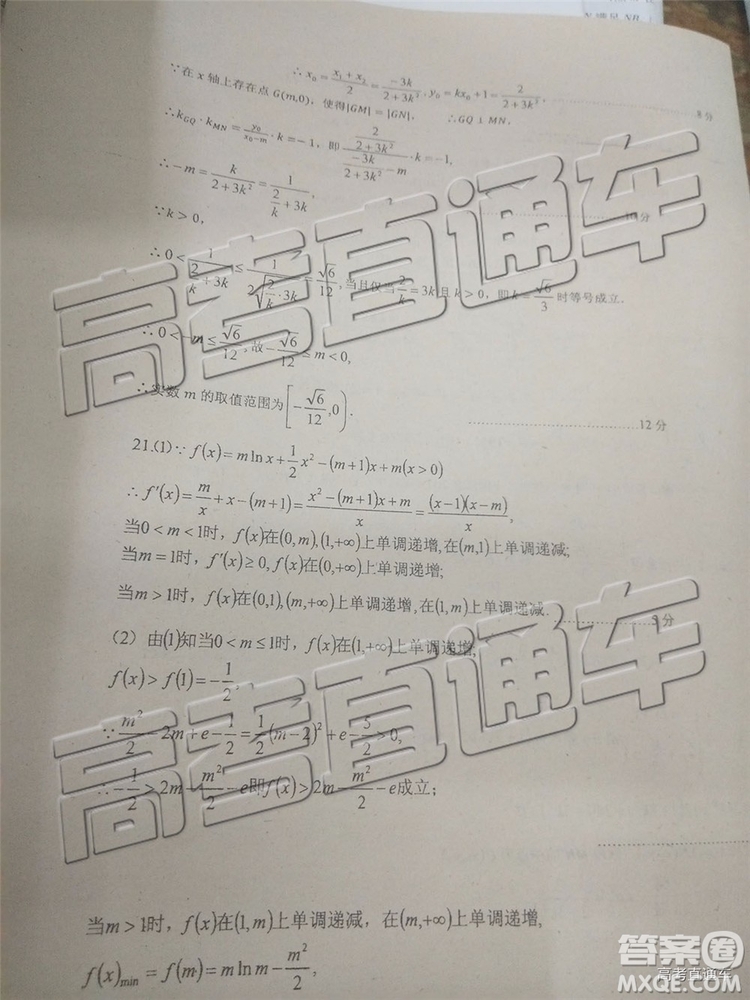 N 满足 NB
∴x₀ = (x₁+x₂)/2 = -3k/(2+3k²), y₀ = kx₀+1 = 2/(2+3k²), ……8分
∵在 x 轴上存在点 G(m,0), 使得|GM| = |GN|, ∴GQ⊥MN,
∴k_GQ · k_MN = y₀/(x₀-m) · k = -1, 即 (2/(2+3k²))/(-3k/(2+3k²) - m) · k = -1,
∴-m = k/(2+3k²) = 1/(2/k+3k),
∵k > 0, ……10分
∴0 < 1/(2/k+3k) ≤ 1/(2√(2/k·3k)) = √6/12, 当且仅当 2/k = 3k 且 k > 0, 即 k = √6/3 时等号成立.
∴0 < -m ≤ √6/12, 故 -√6/12 ≤ m < 0,
∴实数 m 的取值范围为 [-√6/12, 0). ……12分
21.(1)∵ f(x) = m ln x + 1/2 x² - (m+1)x + m(x > 0)
∴ f′(x) = m/x + x - (m+1) = (x² - (m+1)x + m)/x = (x-1)(x-m)/x,
当0 < m < 1时, f(x)在(0,m),(1,+∞)上单调递增,在(m,1)上单调递减;
当m = 1时, f′(x) ≥ 0, f(x)在(0,+∞)上单调递增;
当m > 1时, f(x)在(0,1),(m,+∞)上单调递增,在(1,m)上单调递减. ……5分
(2) 由(1)知当0 < m ≤ 1时, f(x)在(1,+∞)上单调递增,
f(x) > f(1) = -1/2,
∵ m²/2 - 2m + e - 1/2 = 1/2(m-2)² + e - 5/2 > 0,
∴ -1/2 > 2m - m²/2 - e即f(x) > 2m - m²/2 - e成立;
当m > 1时, f(x)在(1,m)上单调递减, 在(m,+∞)上单调递增,
f(x)min = f(m) = m ln m - m²/2,
高考直通车
高考直通车
答案圈
高考直通车
MXQE.COM